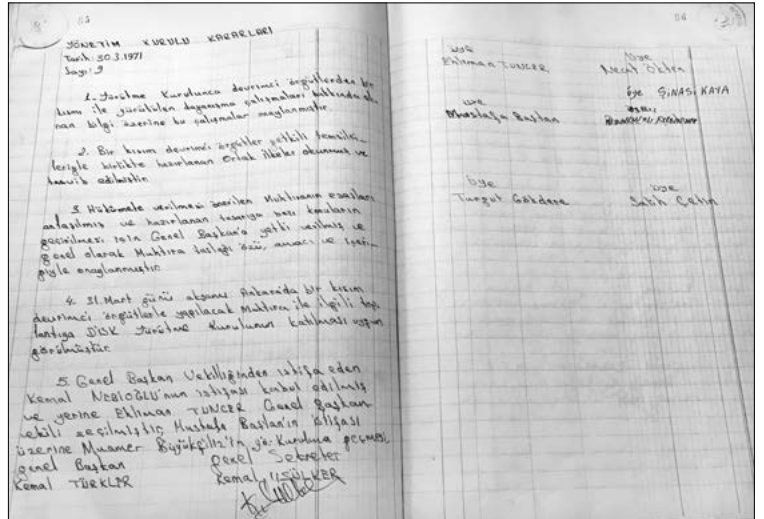 83
YÖNETİM KURULU KARARLARI
Tarih: 30.3.1971
Sayı: 9
1. Yürütme Kurulunca devrimci örgütlerden bir
kısmı ile yürütülen dayanışma çalışmaları hakkında alı-
nan bilgi üzerine bu çalışmalar onaylanmıştır.
2. Bir kısım devrimci örgütler yetkili temsilci-
leriyle birlikte hazırlanan Ortak ilkeler okunmuş ve
tasvib edilmiştir.
3. Hükümete verilmesi önerilen Muhtıranın esasları
anlaşılmış ve hazırlanan tasarıya bazı konuların
geçirilmesi için Genel Başkan'a yetki verilmiş ve
genel olarak Muhtıra taslağı özü, amacı ve içeri-
ğiyle onaylanmıştır.
4. 31. Mart günü akşamı Ankara'da bir kısım
devrimci örgütlerle yapılacak Muhtıra ile ilgili top-
lantıya DİSK Yürütme Kurulunun katılması uygun
görülmüştür.
5. Genel Başkan Vekilliğinden istifa eden
Kemal NEBİOĞLU'nun istifası kabul edilmiş
ve yerine Ehliman TUNCER Genel Başkan
vekili seçilmiştir, Mustafa Baştan'ın istifası
üzerine Muamer Büyükçiliz'in yür. Kuruluna geçmesi,
genel Başkan genel Sekreter
Kemal TÜRKLER Kemal SÜLKER
84
üye üye
Ehliman TUNCER Necat Ökten
üye üye ŞİNASİ KAYA
Mustafa Baştan
üye üye
Turgut Gökdere Salih Çetin